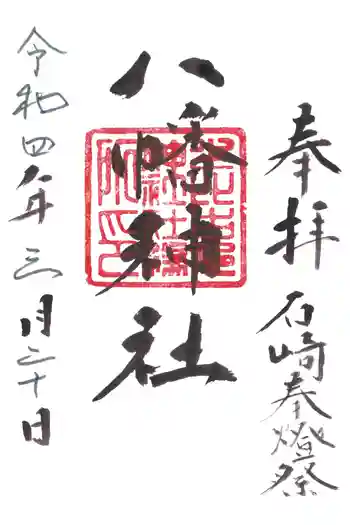 奉拝
石崎奉燈祭
八幡神社
令和四年三月三十日